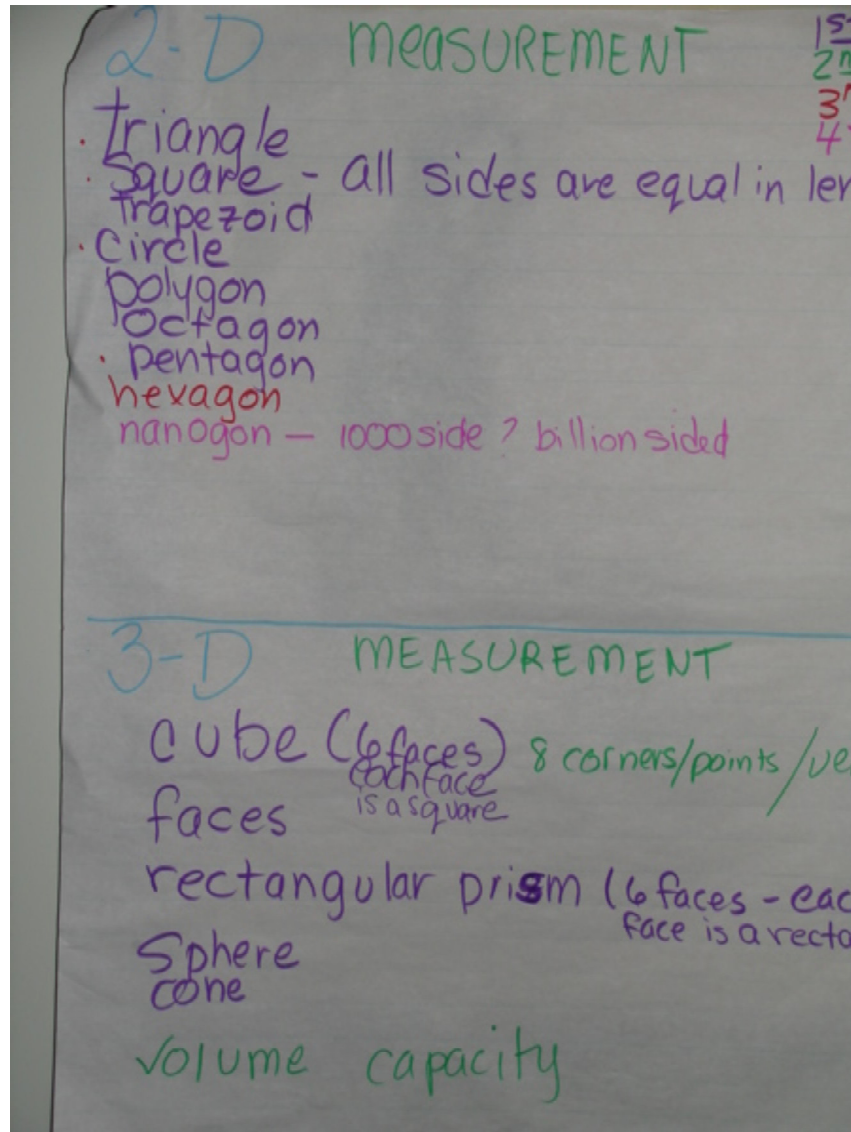 2-D MEASUREMENT
1st
2n
3r
4
triangle
Square - all sides are equal in len
Trapezoid
Circle
polygon
Octagon
pentagon
hexagon
nanogon - 1000 side ? billion sided
3-D MEASUREMENT
cube (6 faces) 8 corners/points/ve
each face
is a square
faces
rectangular prism (6 faces - eac
face is a recta
Sphere
cone
volume capacity